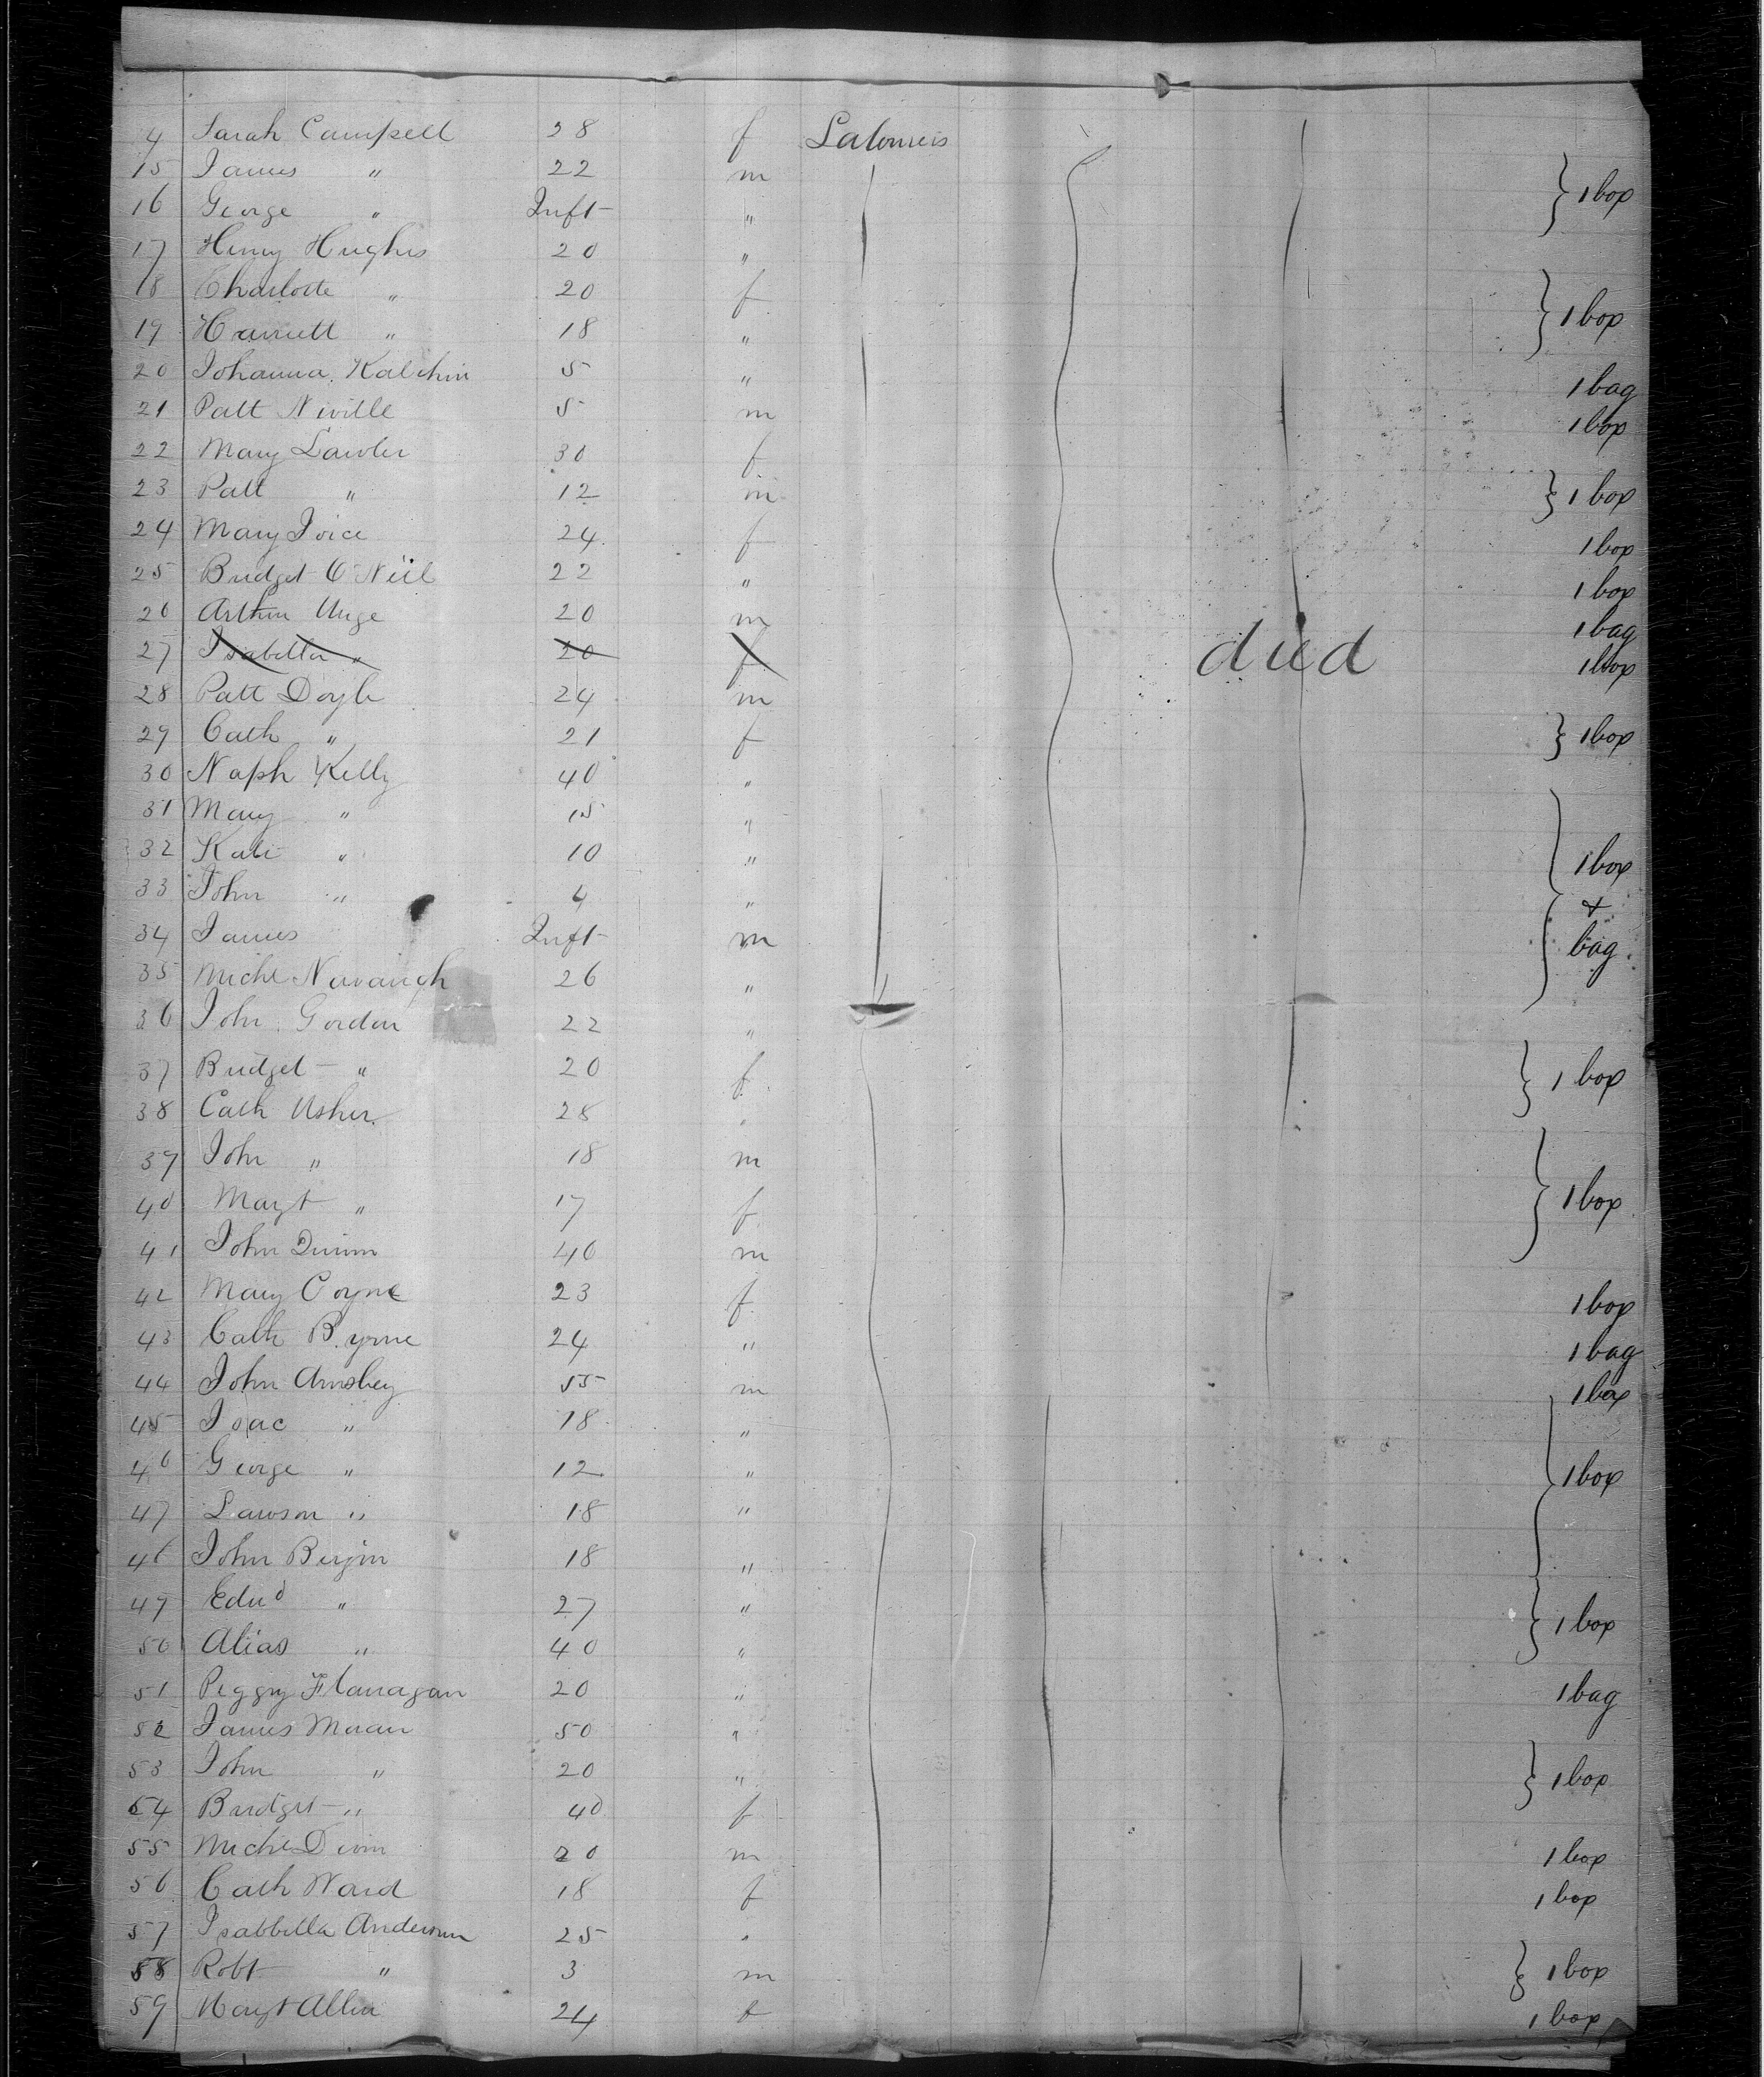 4 Sarah Campell 28 f Laborers
15 James " 22 m
16 George " Inft " } 1 box
17 Henry Hughes 20 "
18 Charlotte " 20 f
19 Harriett " 18 " } 1 box
20 Johanna Kalchin 5 " 1 bag
21 Patt Neville 5 m 1 box
22 Mary Lawler 30 f
23 Patt " 12 m } 1 box
24 Mary Joice 24 f 1 box
25 Bridget O'Neil 22 " 1 box
26 Arthur Unge 20 m 1 bag
27 Isabella " 20 f died 1 box
28 Patt Doyle 24 m
29 Cath " 21 f } 1 box
30 Naph Kelly 40 "
31 Mary " 15 "
32 Kate " 10 " 1 box
33 John " 4 " +
34 James Inft m bag
35 Michl Navaugh 26 "
36 John Gordon 22 "
37 Bridget " 20 f } 1 box
38 Cath Usher 28 "
39 John " 18 m
40 Margt " 17 f } 1 box
41 John Quinn 40 m
42 Mary Coyne 23 f 1 box
43 Cath Byrne 24 " 1 bag
44 John Amsbey 55 m 1 box
45 Isac " 18 "
46 George " 12 " 1 box
47 Lawson " 18 "
48 John Bergin 18 "
49 Edwd " 27 " } 1 box
50 Alias " 40 "
51 Peggy Flanagan 20 " 1 bag
52 James Moran 50 "
53 John " 20 " } 1 box
54 Bridget " 40 f
55 Michl Divin 20 m 1 box
56 Cath Ward 18 f 1 box
57 Isabbella Anderson 25 "
58 Robt " 3 m } 1 box
59 Margt Allen 24 f 1 box